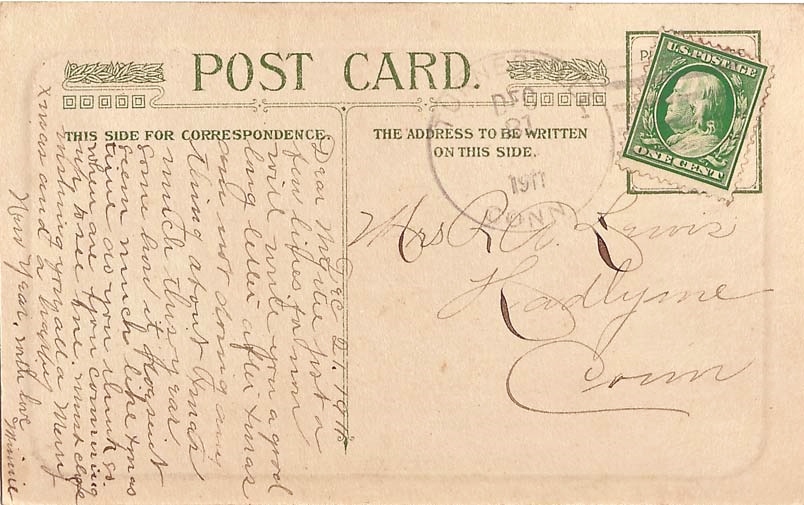 POST CARD.
THIS SIDE FOR CORRESPONDENCE.
THE ADDRESS TO BE WRITTEN
ON THIS SIDE.
DEC
21
1911
CONN
U.S. POSTAGE
ONE CENT
Mrs R. Lewis
Hadlyme
Conn
Dec 21, 1911.
Dear just a
few lines to now
will write you a good
long letter after xmas
am not doing any
thing about Xmas
much this year
some how it doesnt
seem much like xmas
time do you think so
when are you coming
out to see me. must close
wishing you all a Merry
Xmas and a happy
New Year. with love
Minnie